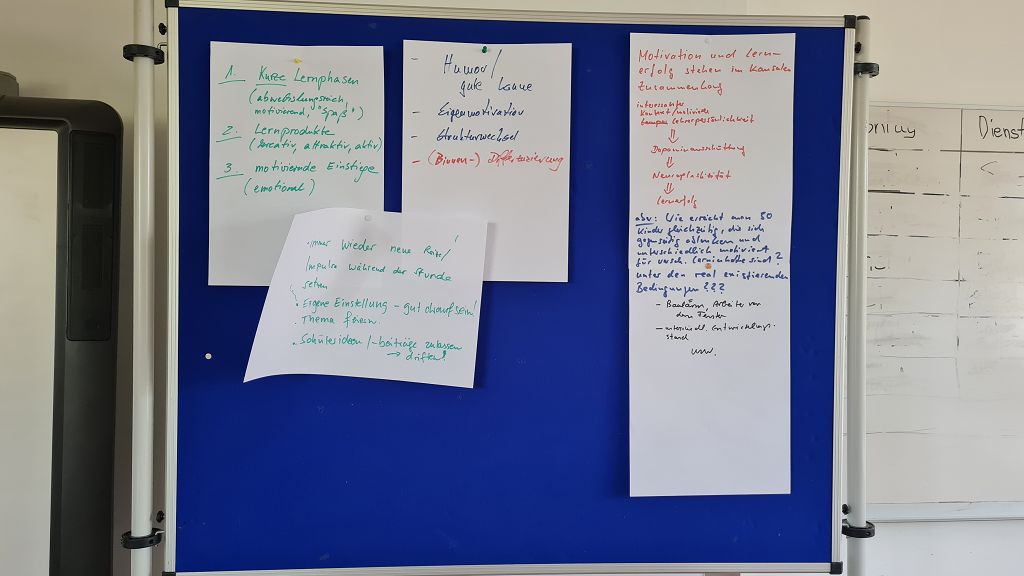 1. Kurze Lernphasen
(abwechslungsreich,
motivierend, "Spaß")
2. Lernprodukte
(kreativ, attraktiv, aktiv)
3. motivierende Einstiege
(emotional)
- Humor/
gute Laune
- Eigenmotivation
- Strukturwechsel
- (Binnen-) Differenzierung
• immer wieder neue Reize/
Impulse während der Stunde
setzen
• Eigene Einstellung - gut drauf sein!
• Thema feiern
• Schülerideen/-beiträge zulassen
→ driften!
Motivation und Lern-
erfolg stehen im kausalen
Zusammenhang
interessanter
Kontext/motivierte
Lehrerpersönlichkeit
⇓
Dopaminausschüttung
⇓
Neuroplastizität
⇓
Lernerfolg
aber: Wie erreicht man 30
Kinder gleichzeitig, die sich
gegenseitig ablenken und
unterschiedlich motiviert
für versch. Lerninhalte sind?
unter den real existierenden
Bedingungen???
- Baulärm, Arbeiten vor
dem Fenster
- unterschiedl. Entwicklungs-
stand
usw.
Dienst